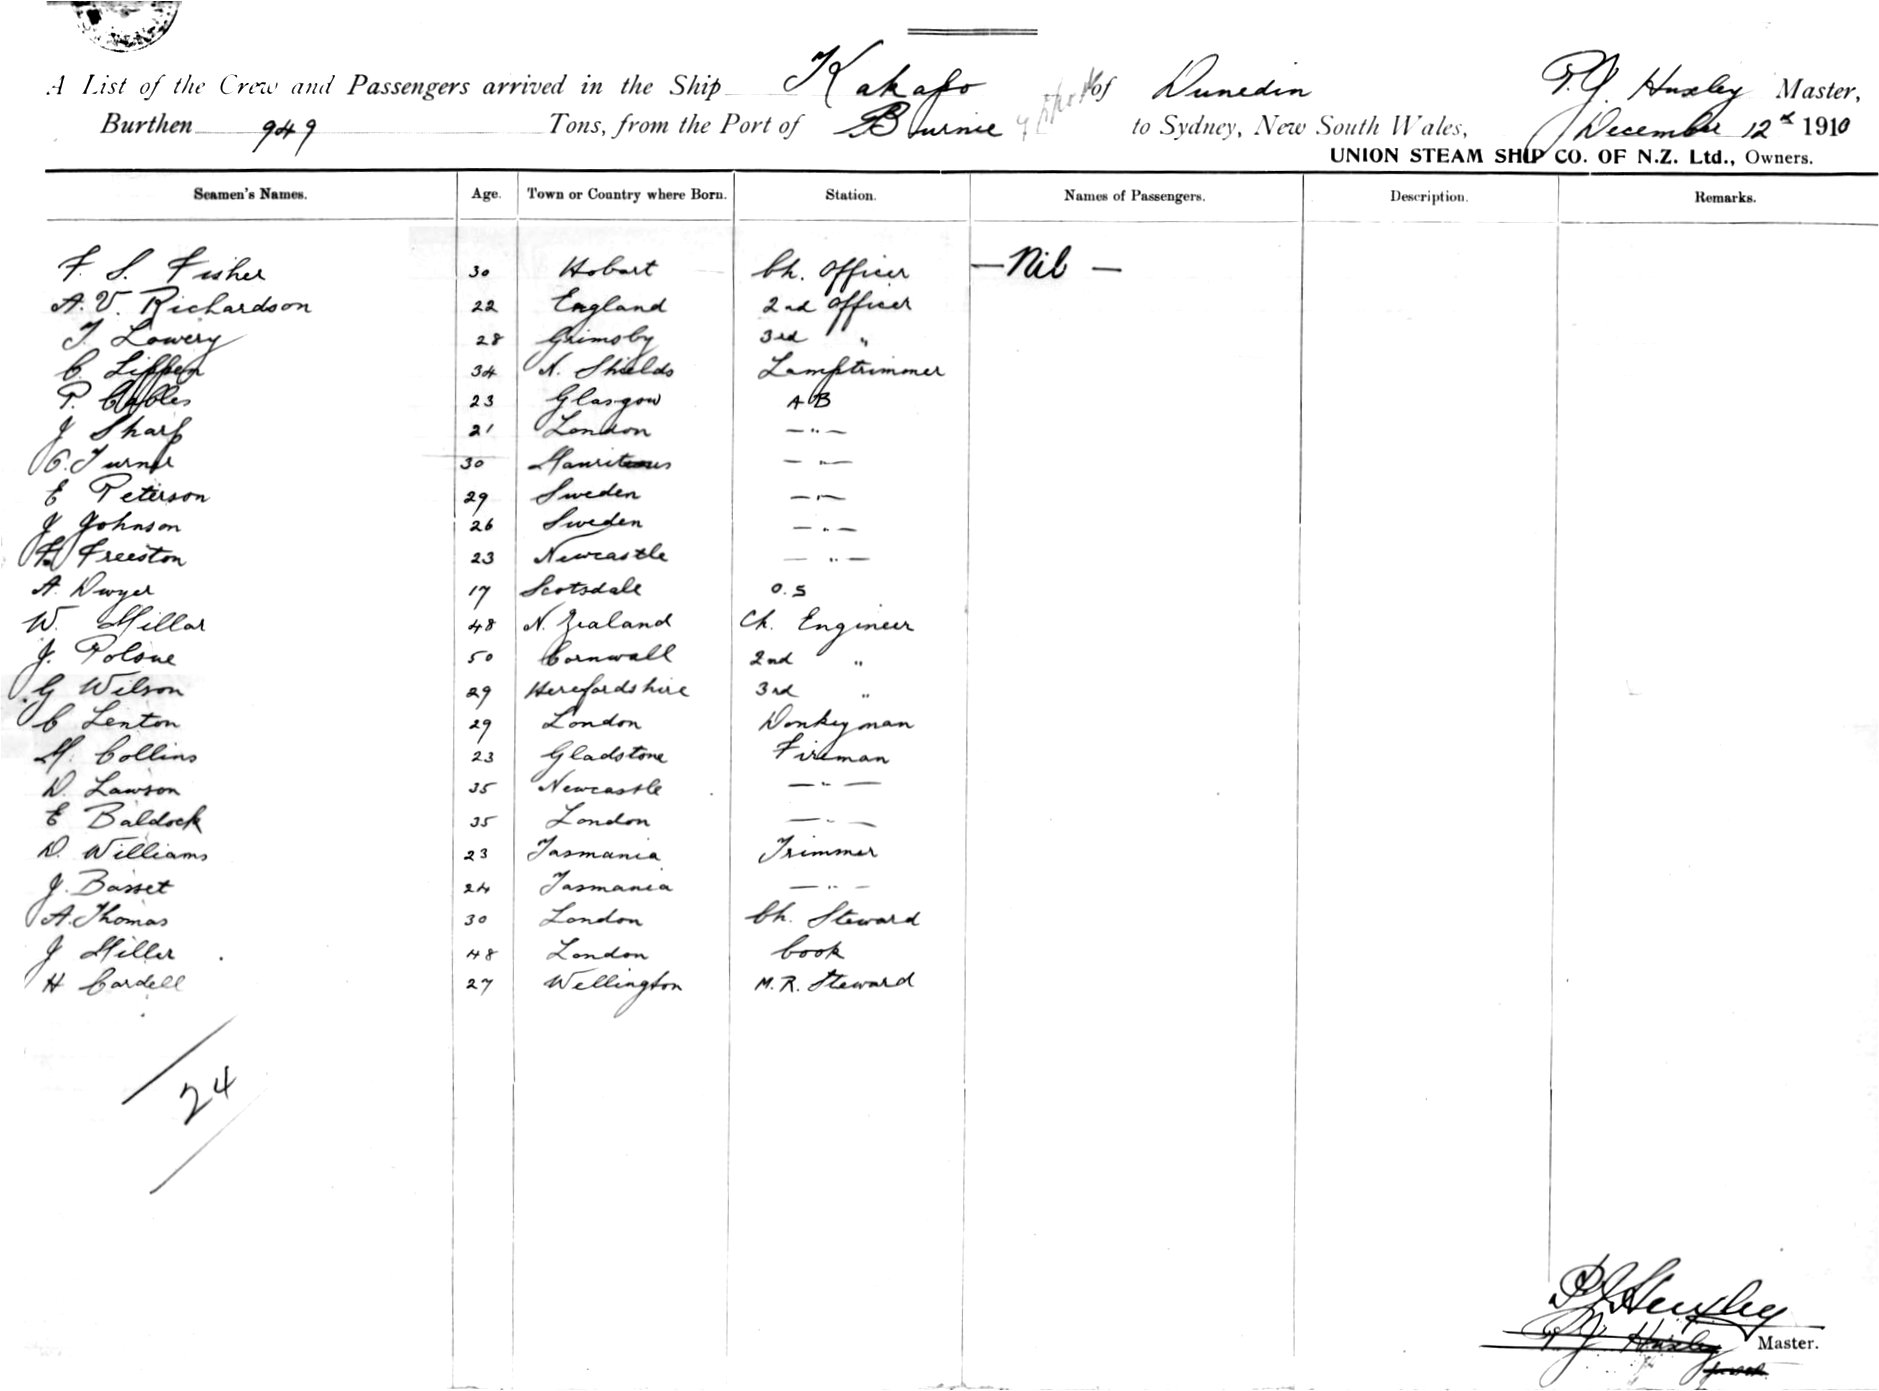 A List of the Crew and Passengers arrived in the Ship Kakapo of Dunedin P. J. Huxley Master,
Burthen 949 Tons, from the Port of Burnie to Sydney, New South Wales, December 12th 1910
UNION STEAM SHIP CO. OF N.Z. Ltd., Owners.
Seamen's Names. Age. Town or Country where Born. Station. Names of Passengers. Description. Remarks.
F. S. Fisher 30 Hobart Ch. Officer — Nil —
A. V. Richardson 22 England 2nd Officer
T. Lowery 28 Grimsby 3rd "
C. Lippen 34 N. Shields Lamptrimmer
P. Cables 23 Glasgow A B
J Sharp 21 London — " —
C. Turner 30 Mauritius — " —
E Peterson 29 Sweden — " —
J Johnson 26 Sweden — " —
F. Freeston 23 Newcastle — " —
A. Dwyer 17 Scotsdale O. S
W. Millar 48 N. Zealand Ch. Engineer
J. Polsue 50 Cornwall 2nd "
G Wilson 29 Herefordshire 3rd "
C Lenton 29 London Donkeyman
M. Collins 23 Gladstone Fireman
D. Lawson 35 Newcastle — " —
E Baldock 35 London — " —
D. Williams 23 Tasmania Trimmer
J. Basset 24 Tasmania — " —
A. Thomas 30 London Ch. Steward
J Miller 48 London Cook
H Cardell 27 Wellington M. R. Steward
24
P J Huxley
P J Huxley Master.